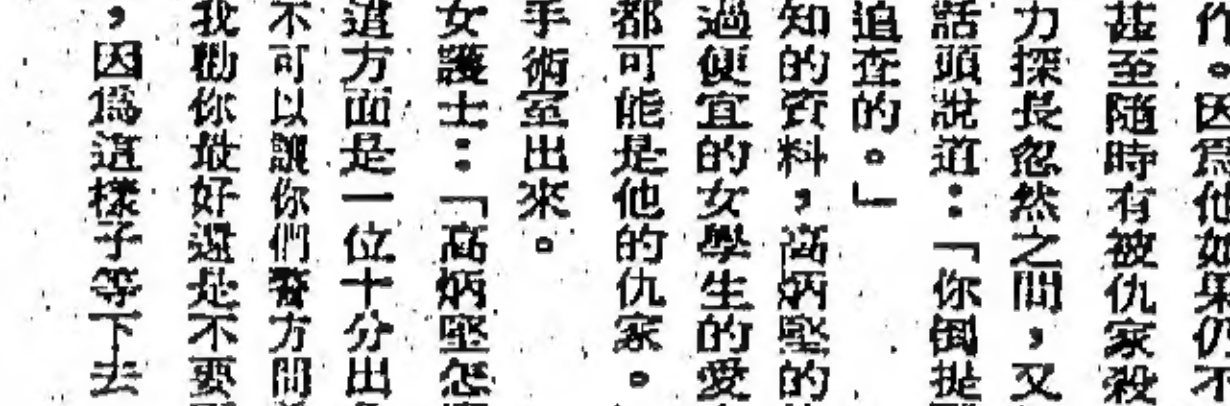 作。因爲他如果仍不
甚至隨時有被仇家殺
力探長忽然之間，又
話頭說道：「你倒提
追查的。」
知的資料，高炳堅的
過便宜的女學生的愛
都可能是他的仇家。
手術室出來。
女護士：「高炳堅怎
這方面是一位十分出
不可以讓你們警方問
我勸你最好還是不要
，因爲這樣子等下去